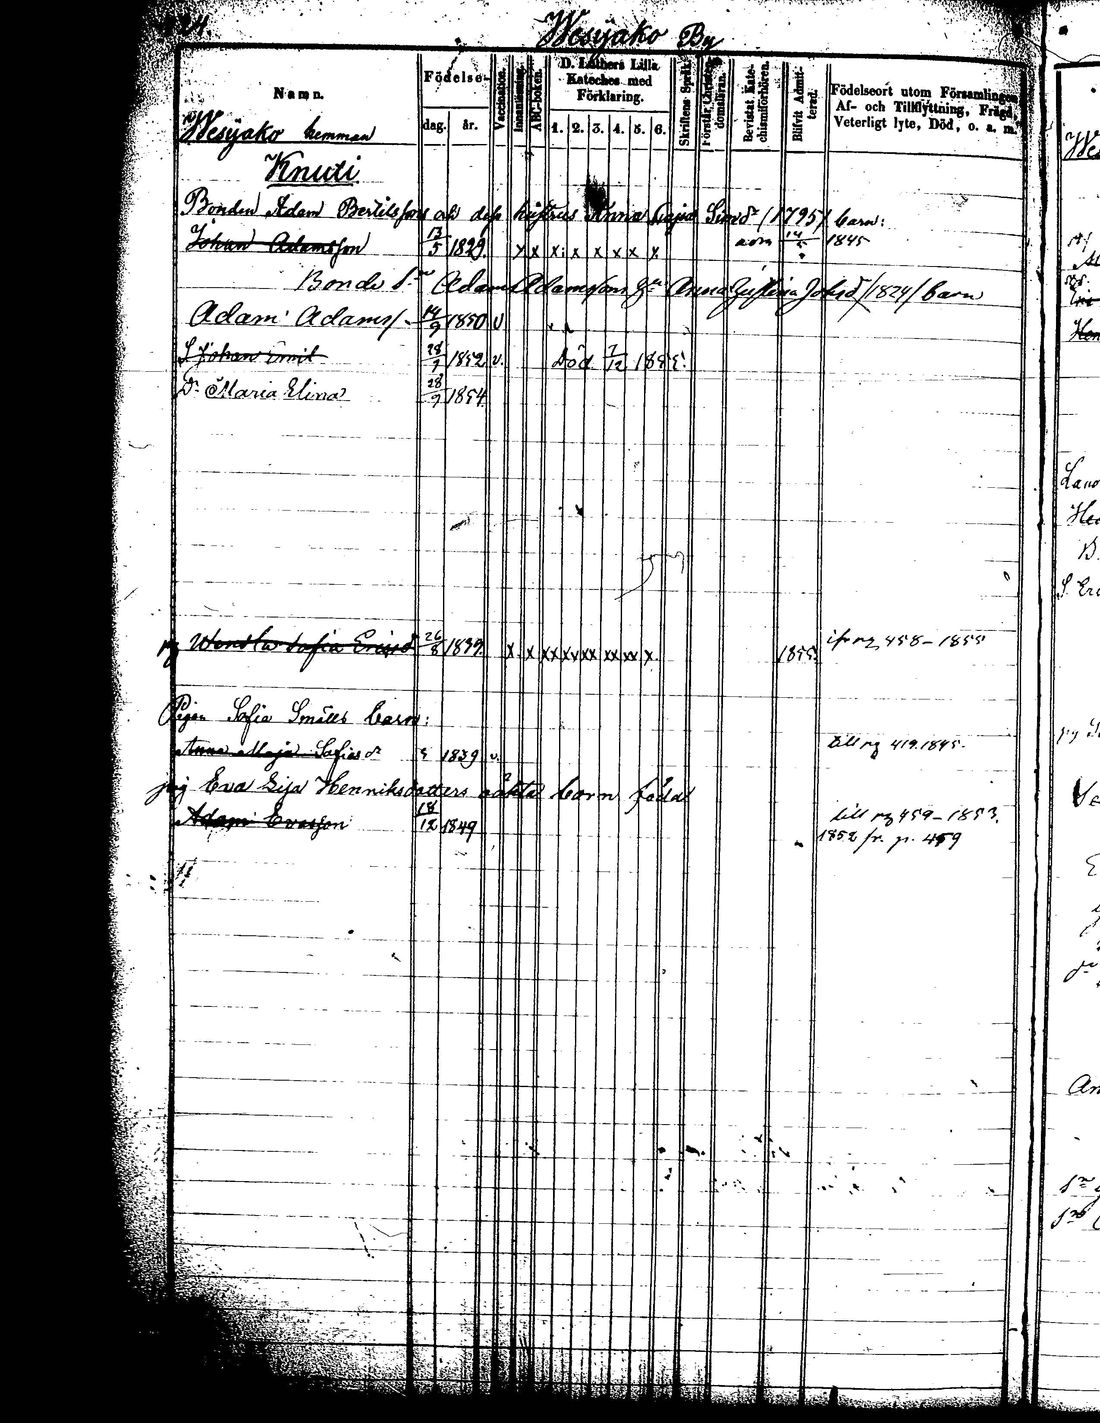 Wesijako By
Namn.
Födelse-
dag. år.
Vaccination.
Innanläsning.
ABC-boken.
D. Luthers Lilla
Kateches med
Förklaring.
1. 2. 3. 4. 5. 6.
Skriftens Språk.
Förstår Christendomsläran.
Bevistat Kate-
chismiförhören.
Blifvit Admit-
terad.
Födelseort utom Församlingen,
Af- och Tillflyttning, Frägd,
Veterligt lyte, Död, o. a. m.
Wesijako hemman
Knuti
Bonden Adam Bertilssons och dess hustrus Anna Caisa Simdr (1795) barn:
Johan Adamsson 13/5 1829 x x x x x x x x 1845
Bonde Adam Adamssons Anna Gustina Johsd /1824/ barn
Adam Adams 14/9 1850 v
S. Johan Emil 28/7 1852 v. Död 7/12 1855
Dr Maria Elina 28/9 1854
Wendla Sofia Ericsd 26/8 1839 x x xx xv xx xx xx x 1855 ifr pg 458-1855
Pigan Sofia Smälls barn:
Anna Maja Sofias dr 1839 v. till pg 419.1845.
pig Eva Lisa Henriksdotters oäkta barn föda
Adam Evasson 18/12 1849 till pg 459-1853.
1852 fr. p. 459